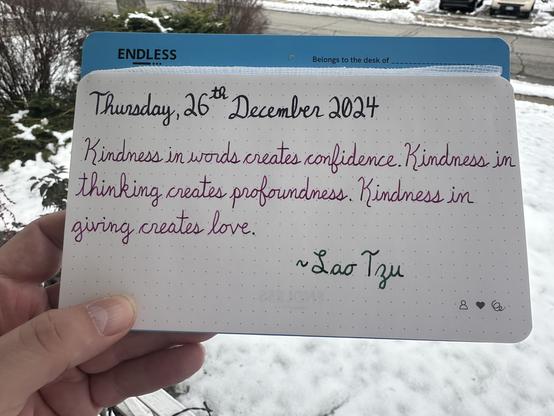 ENDLESS
Belongs to the desk of
Thursday, 26th December 2024
Kindness in words creates confidence. Kindness in
thinking creates profoundness. Kindness in
giving creates love.
~Lao Tzu